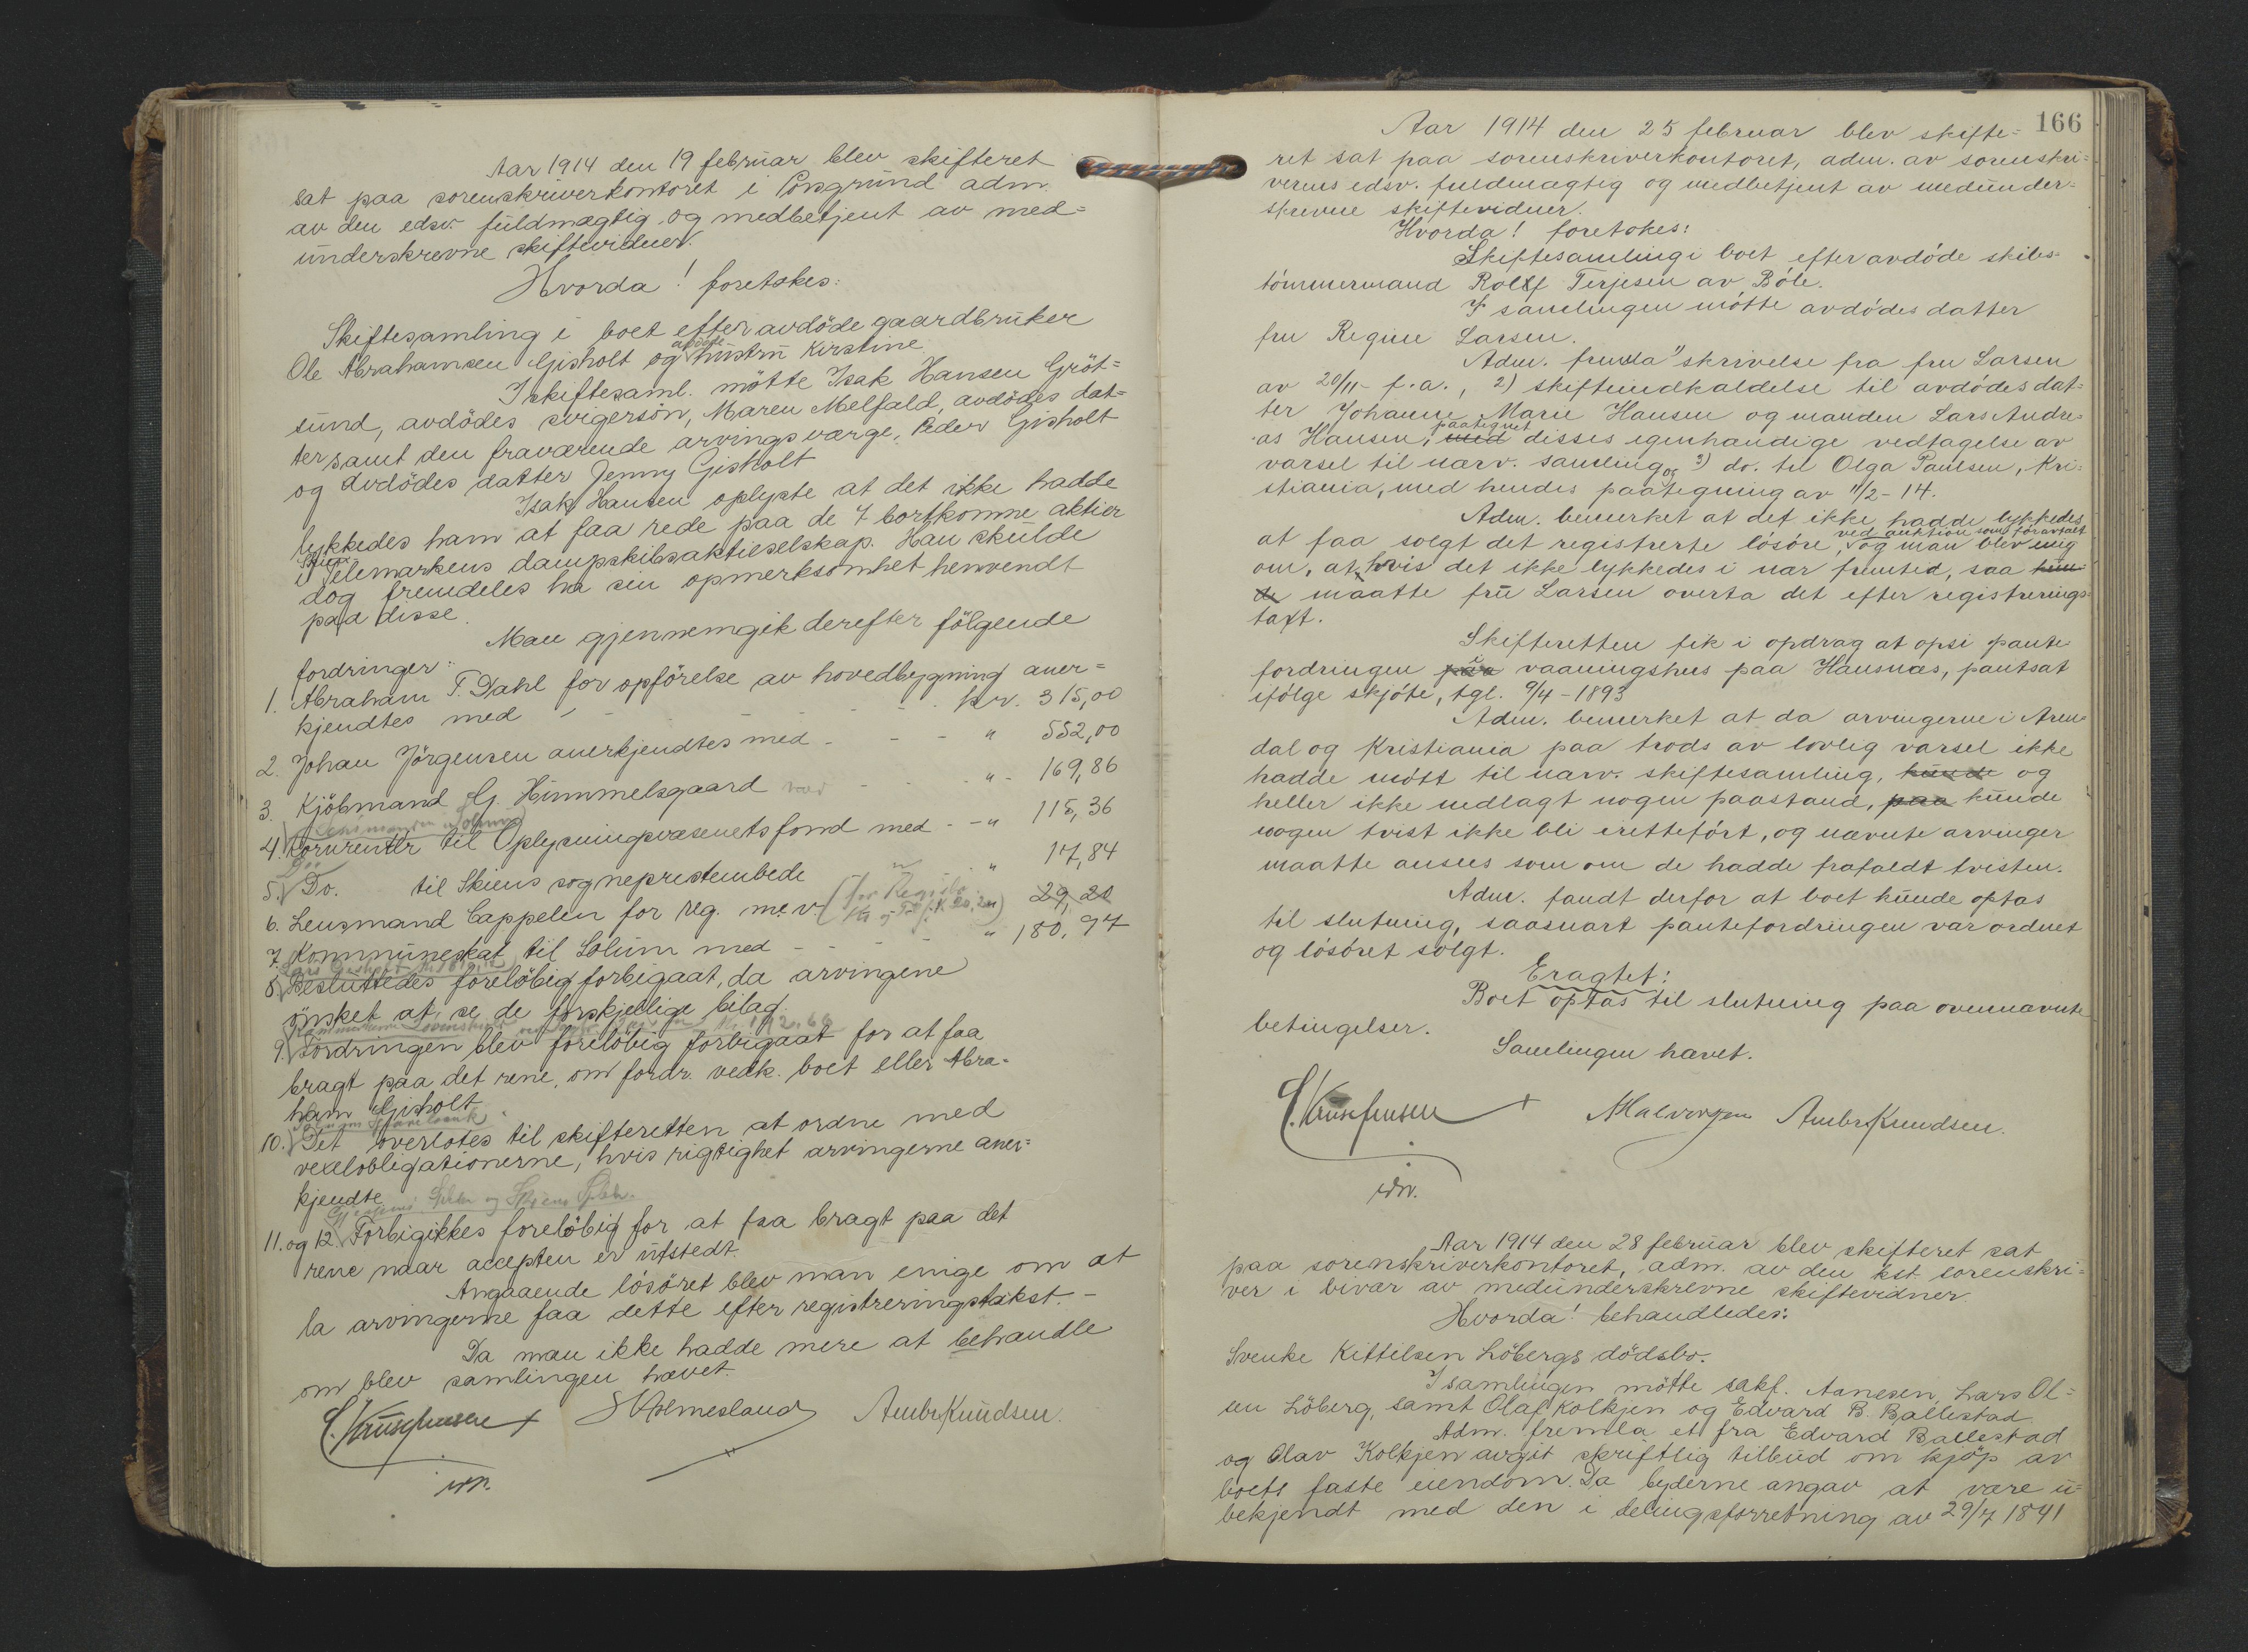 Aar 1914 den 19 februar blev skifteret
sat paa sorenskriverkontoret i Porsgrund adm.
av den edsv. fuldmægtig og medbetjent av med-
underskrevne skiftevidner.
Hvorda! foretokes:
Skiftesamling i boet efter avdöde gaardbruker
Ole Abrahamsen Gisholt og avdöde hustru Kirstine.
I skiftesaml. mötte Isak Hansen Gröt-
sund, avdödes svigersön, Maren Melfald, avdödes dat-
ter samt den fraværende arvings værge, Peder Gisholt
og avdödes datter Jenny Gisholt
Isak Hansen oplyste at det ikke hadde
lykkedes ham at faa rede paa de 7 bortkomne aktier
i Skiens Telemarkens dampskibsaktieselskap. Han skulde
dog fremdeles ha sin opmerksomhet henvendt
paa disse.
Man gjennemgik derefter fölgende
fordringer:
1. Abraham T. Dahl for opförelse av hovedbygning aner-
kjendtes med - - - - - kr. 315,00
2. Johan Jörgensen anerkjendtes med - - - " 552,00
3. Kjöbmand G. Himmelsgaard - - " - 169,86
4. Kornrenter til Oplysningsvæsenets fond med - - " 115,36
5. Do. til Skiens sogneprestembede " 17,84
6. Lensmand Cappelen for reg. m. v. 29,20
7. Kommuneskat til Solum med - - - - " 180,97
8. Besluttedes foreløbig forbigaat, da arvingene
önsket at se de forskjellige bilag.
9. Fordringen blev foreløbig forbigaat for at faa
bragt paa det rene, om fordr. vedk. boet eller Abra-
ham Gisholt.
Solum Sparebank
10. Det overlotes til skifteretten at ordne med
vexelobligationerne, hvis rigtighet arvingerne aner-
kjendte.
11. og 12. Forbigikkes foreløbig for at faa bragt paa det
rene naar accepten er utstedt.
Angaaende lösöret blev man enige om at
la arvingerne faa dette efter registreringstakst. -
Da man ikke hadde mere at behandle
om blev samlingen hævet.
S Holmesland Ambr Knudsen.
166
Aar 1914 den 25 februar blev skifte-
ret sat paa sorenskriverkontoret, adm. av sorenskri-
verens edsv. fuldmægtig og medbetjent av medunder-
skrevne skiftevidner.
Hvorda! foretokes:
Skiftesamling i boet efter avdöde skibs-
tömmermand Rolf Terjesen av Böle.
I samlingen mötte avdödes datter
fru Regine Larsen.
Adm. fremla 1) skrivelse fra fru Larsen
av 20/11 - f. a., 2) skifteindkaldelse til avdödes dat-
ter Johanne Marie Hansen og manden Lars Andre-
as Hansen, paategnet med disses egenhændige vedtagelse av
varsel til nærv. samling og 3) do. til Olga Paulsen, Kri-
stiania, med hendes paategning av 11/2 - 14.
Adm. bemerket at det ikke hadde lykkedes
at faa solgt det registrerte lösöre, ved auktion som foravtalt og man blev enig
om, at hvis det ikke lykkedes i nær fremtid, saa kun-
de maatte fru Larsen overta det efter registrerings-
taxt.
Skifteretten fik i opdrag at opsi pante-
fordringen paa vaaningshus paa Hausnæs, pantsat
ifölge skjöte, tgl. 9/4 - 1893
Adm. bemerket at da arvingerne i Aren-
dal og Kristiania paa trods av lovlig varsel ikke
hadde mött til nærv. skiftesamling, kunde og
heller ikke nedlagt nogen paastand, paa kunde
nogen tvist ikke bli iretteført, og nævnte arvinger
maatte ansees som om de hadde frafaldt tvisten.
Adm. fandt derfor at boet kunde optas
til slutning, saasnart pantefordringen var ordnet
og lösöret solgt.
Eragtet:
Boet optas til slutning paa ovennævnte
betingelser.
Samlingen hævet.
N Halvorsen Ambr Knudsen.
Aar 1914 den 28 februar blev skifteret sat
paa sorenskriverkontoret, adm. av den kst. sorenskri-
ver i bivær av medunderskrevne skiftevidner.
Hvorda! behandledes:
Svenke Kittelsen Löbergs dödsbo.
I samlingen mötte sakf. Aanesen, Lars Ol-
sen Löberg, samt Olaf Kolkjen og Edvard B. Ballestad.
Adm. fremla et fra Edvard Ballestad
og Olav Kolkjen avgit skriftlig tilbud om kjöp av
boets faste eiendom. Da byderne angav at være u-
bekjendt med den i delingsforretning av 29/7 1841